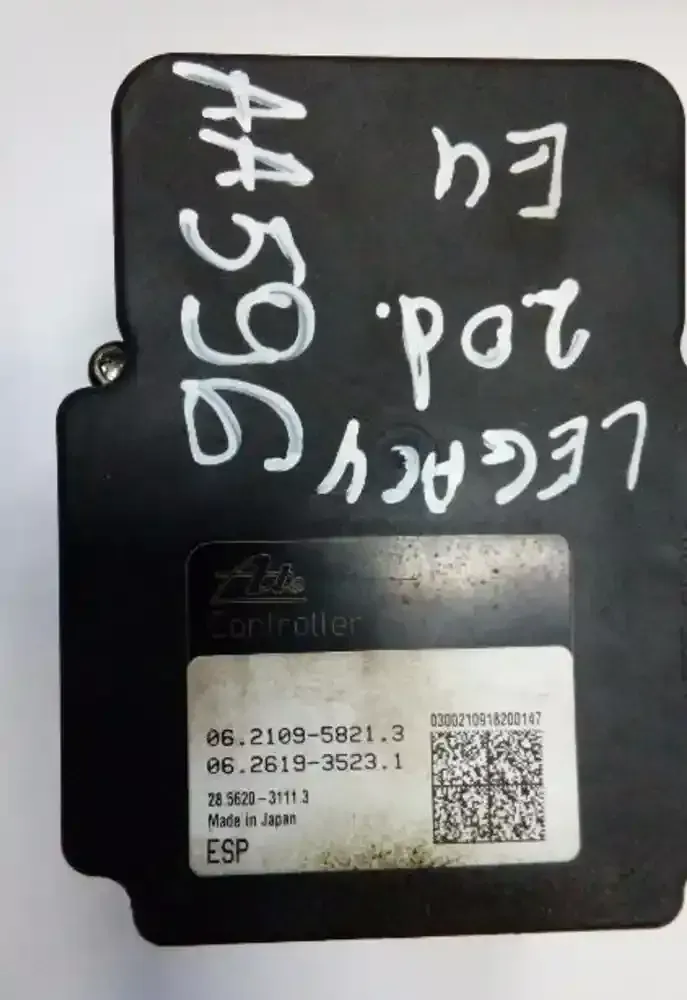 AA596
E4
20d.
LEGACY
Ate
Controller
0300210918200147
06.2109-5821.3
06.2619-3523.1
28.5620-3111.3
Made in Japan
ESP